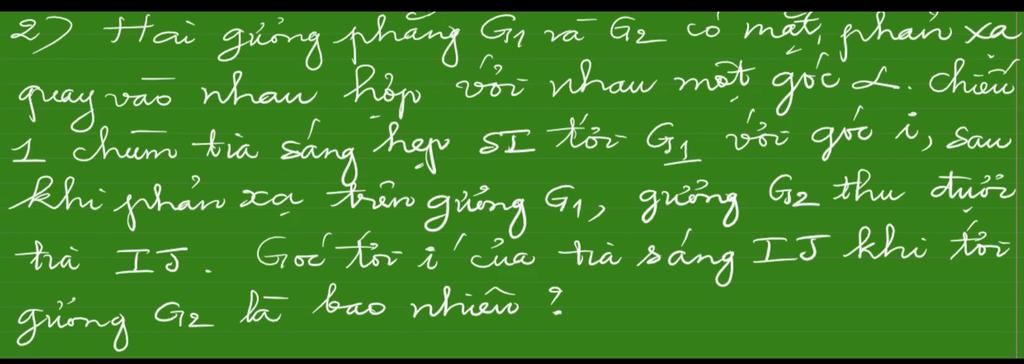 2) Hai gương phẳng G1 và G2 có mặt phản xạ
quay vào nhau hợp với nhau một góc α. Chiếu
1 chùm tia sáng hẹp SI tới G1 với góc i, sau
khi phản xạ trên gương G1, gương G2 thu được
tia IJ. Góc tới i' của tia sáng IJ khi tới
gương G2 là bao nhiêu?